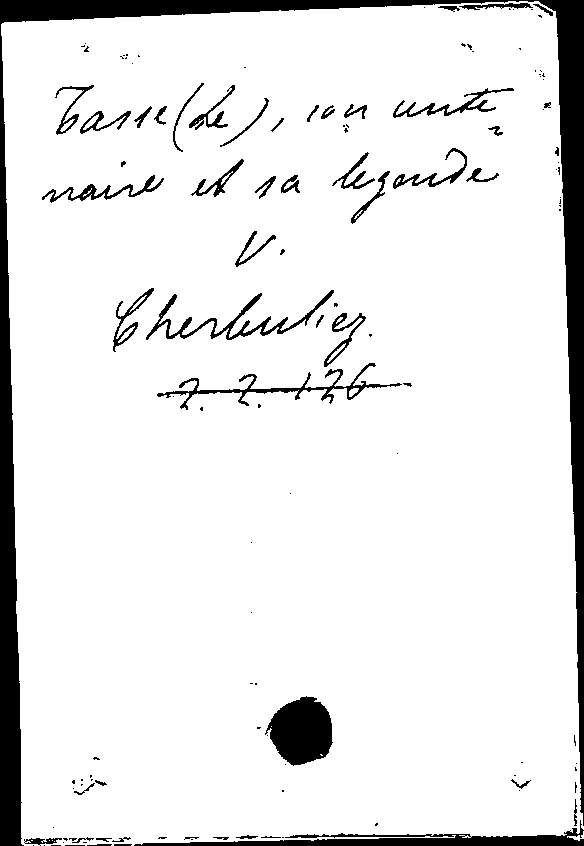 Tasse (Le), son cente
naire et sa legende
V.
Cherbuliez.
2. 2. 126